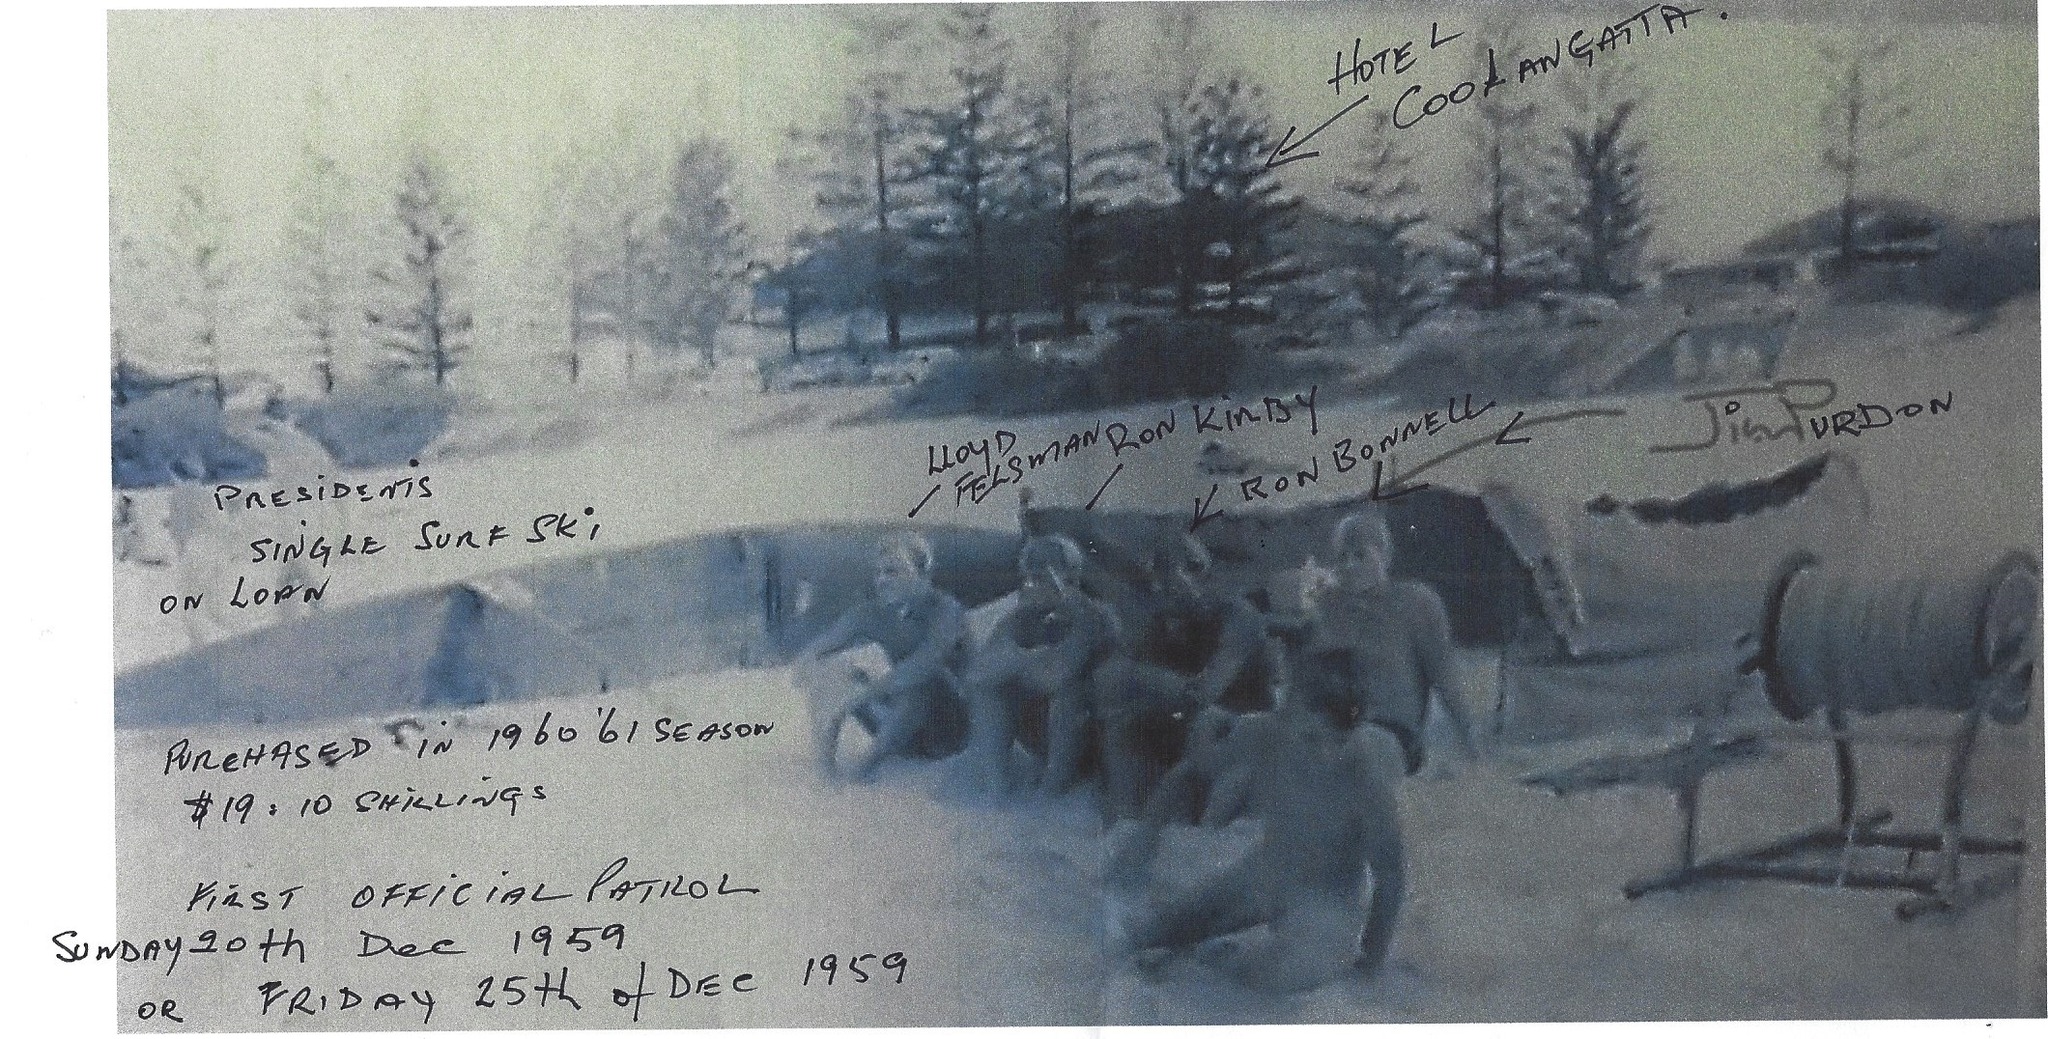 HOTEL
COOLANGATTA.
LLOYD
FELSMAN
RON KIRBY
RON BONNELL
Jim PURDON
PRESIDENTS
SINGLE SURF SKI
ON LOAN
PURCHASED IN 1960 '61 SEASON
$19: 10 SHILLINGS
FIRST OFFICIAL PATROL
SUNDAY 20th Dec 1959
OR FRIDAY 25th of DEC 1959